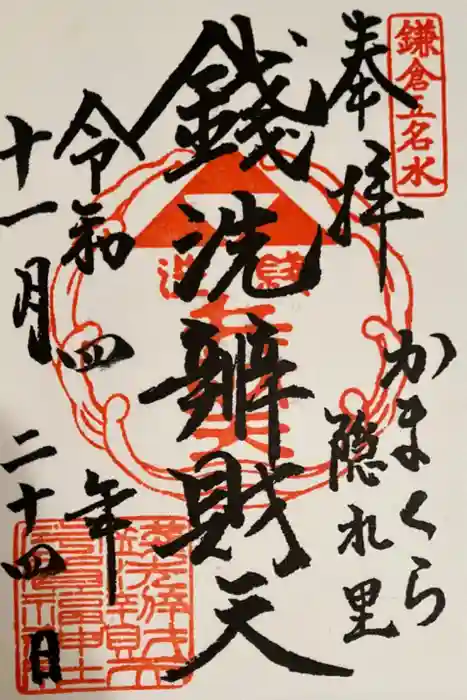 鎌倉五名水
奉拝
かまくら
隠れ里
銭洗辨財天
令和四年
十一月二十四日